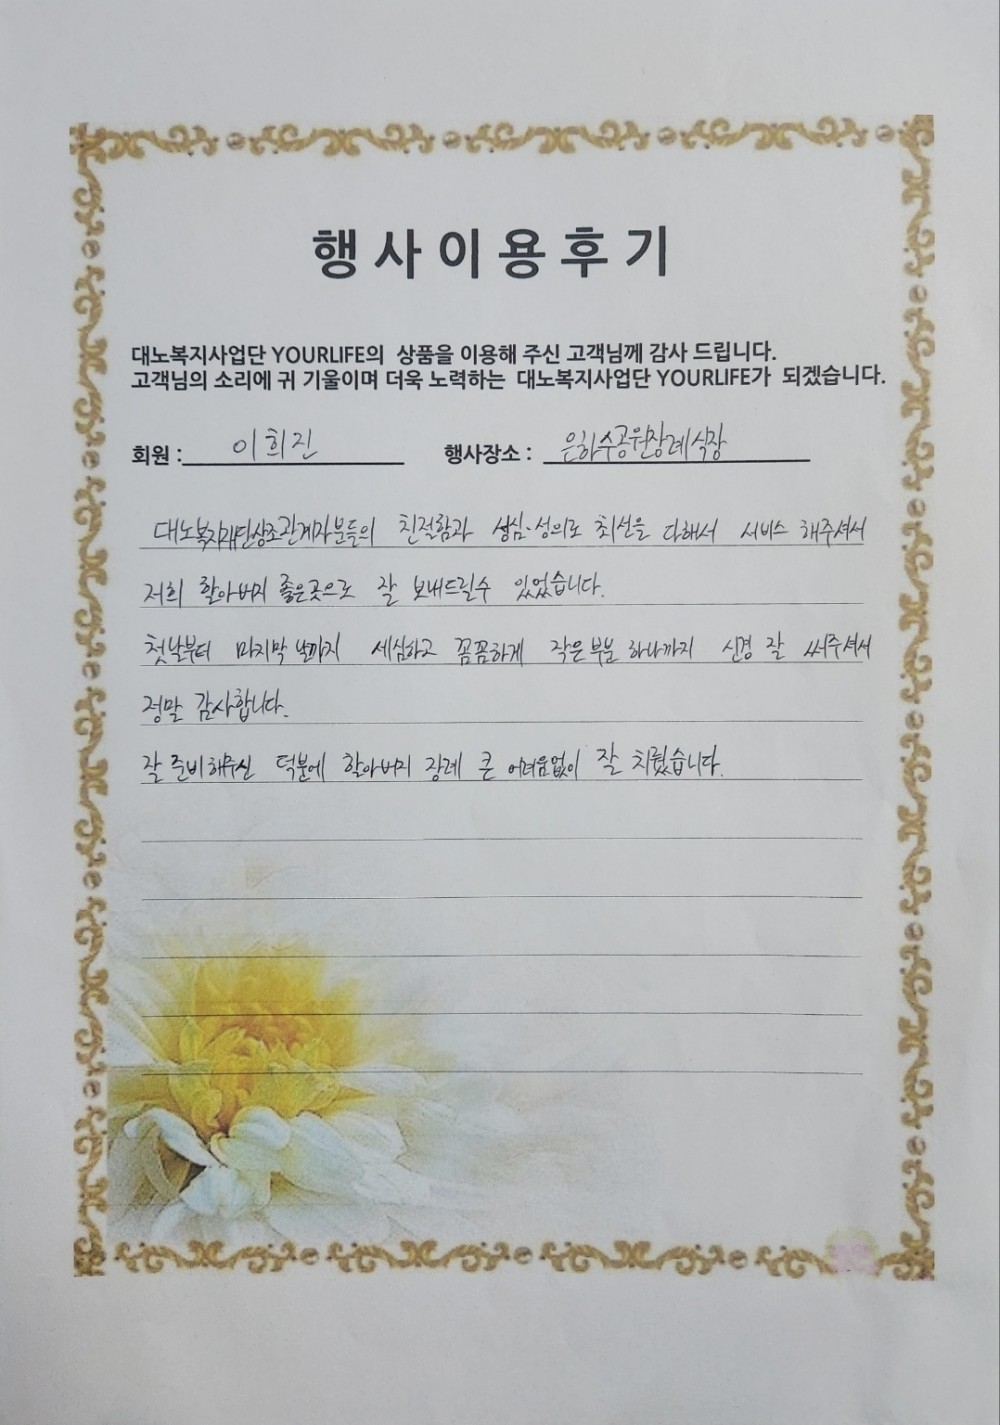 행사이용후기
대노복지사업단 YOURLIFE의 상품을 이용해 주신 고객님께 감사 드립니다.
고객님의 소리에 귀 기울이며 더욱 노력하는 대노복지사업단 YOURLIFE가 되겠습니다.
회원 : 이희진 행사장소 : 은하수공원장례식장
대노복지재단상조관계자분들의 친절함과 성심·성의로 최선을 다해서 서비스 해주셔서
저희 할아버지 좋은곳으로 잘 보내드릴수 있었습니다.
첫날부터 마지막 날까지 세심하고 꼼꼼하게 작은 부분 하나까지 신경 잘 써주셔서
정말 감사합니다.
잘 준비해주신 덕분에 할아버지 장례 큰 어려움없이 잘 치뤘습니다.